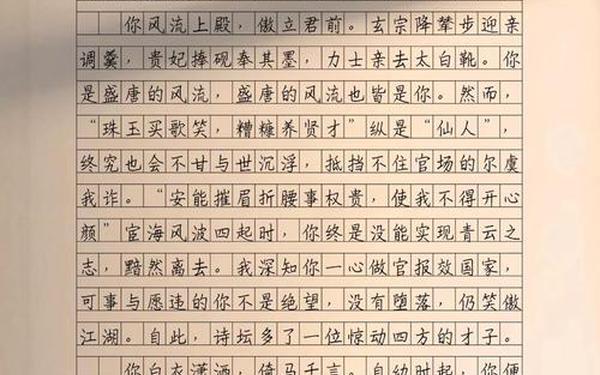 你风流上殿，傲立君前。玄宗降辇步迎亲
调羹，贵妃捧砚奉其墨，力士亲去太白靴。你
是盛唐的风流，盛唐的风流也皆是你。然而，
“珠玉买歌笑，糟糠养贤才”纵是“仙人”，
终究也会不甘与世沉浮，抵挡不住官场的尔虞
我诈。“安能摧眉折腰事权贵，使我不得开心
颜”宦海风波四起时，你终是没能实现青云之
志，黯然离去。我深知你一心做官报效国家，
可事与愿违的你不是绝望，没有堕落，仍笑傲
江湖。自此，诗坛多了一位惊动四方的才子。
你白衣潇洒，倚马千言。自幼时起，你便